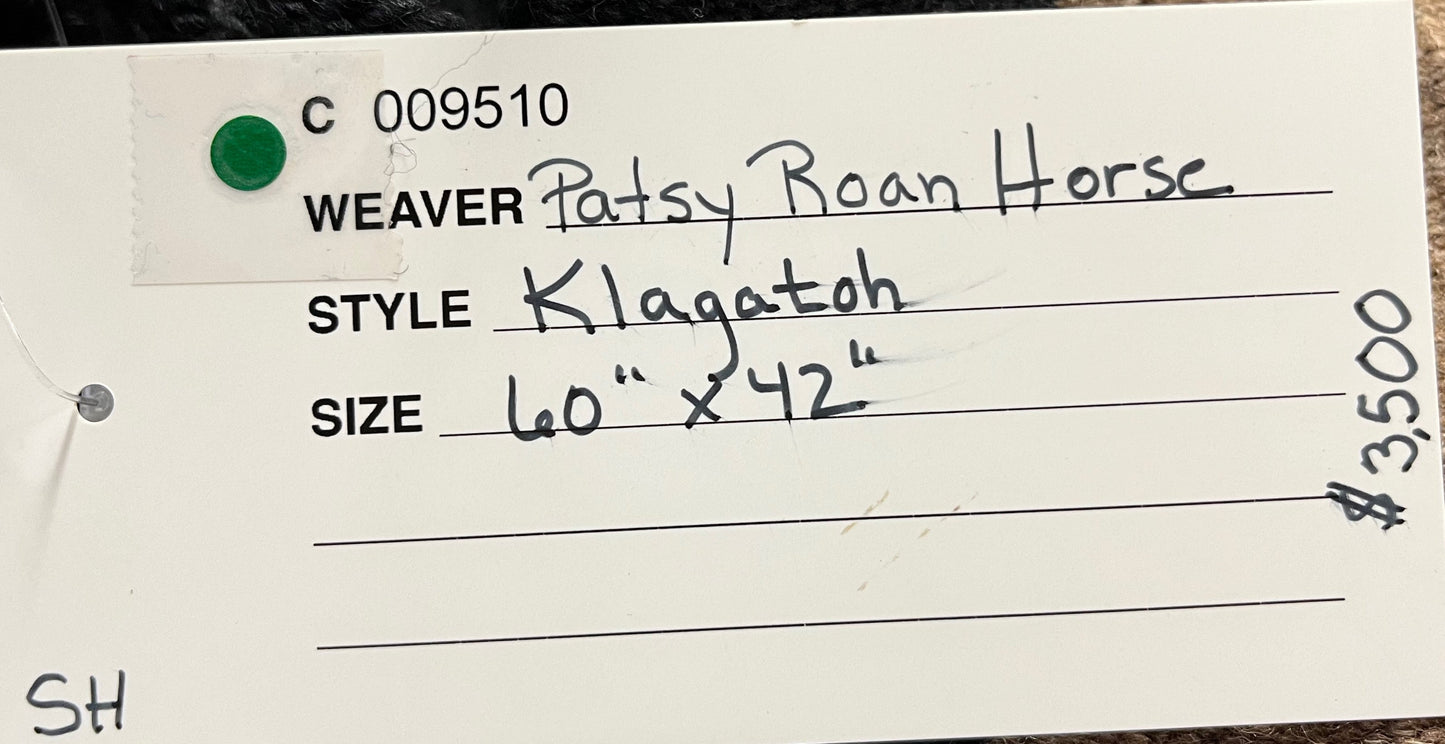 C 009510
WEAVER Patsy Roan Horse
STYLE Klagatoh
SIZE 60" x 42"
$3,500
SH